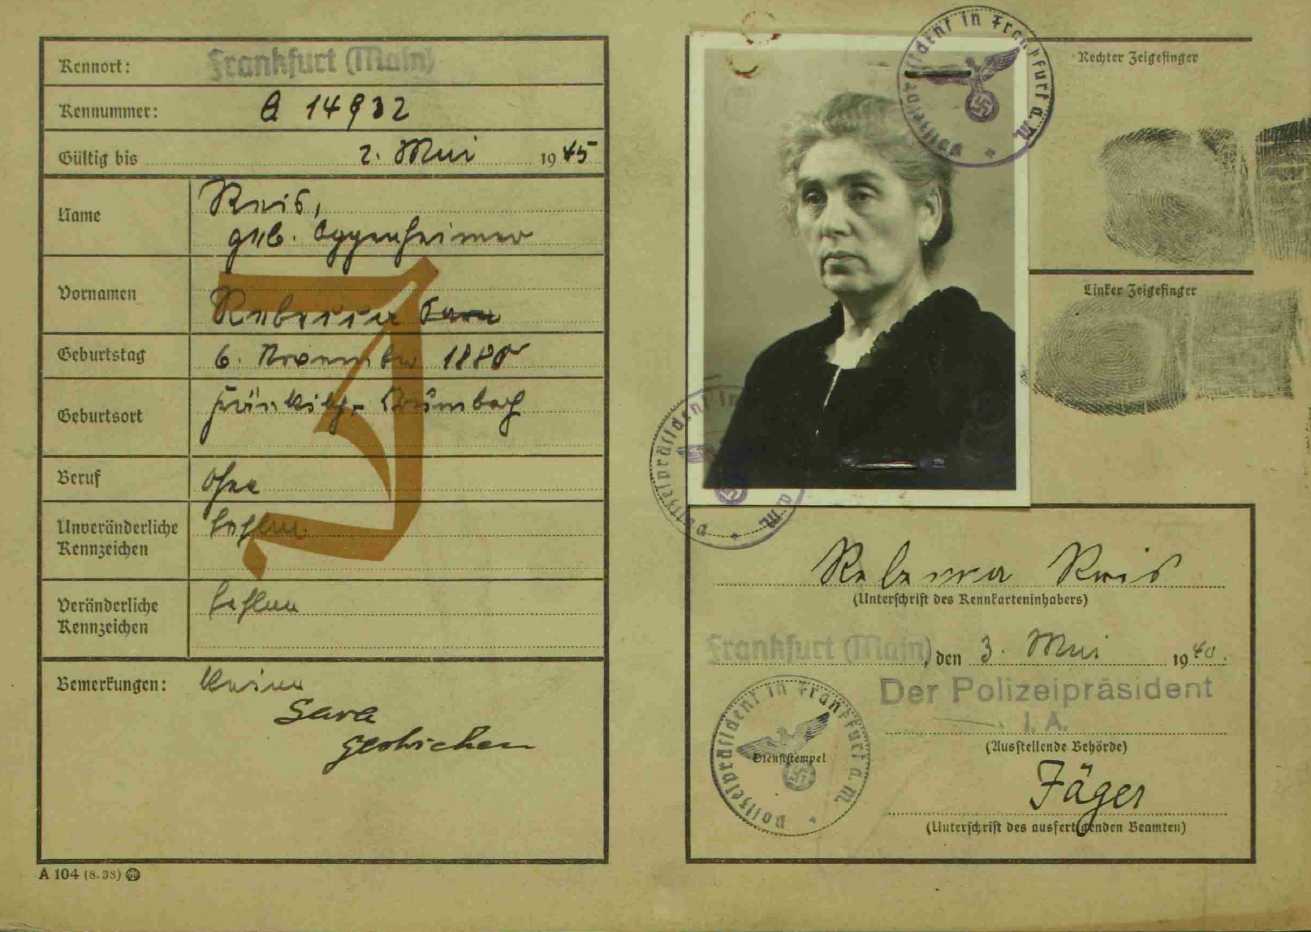 Kennort: Frankfurt (Main)
Kennummer: A 14932
Gültig bis 2. Mai 1945
Name Reis,
geb. Oppenheimer
Vornamen Rebecca Sara
Geburtstag 6. November 1880
Geburtsort Fränkisch-Crumbach
Beruf ohne
Unveränderliche Kennzeichen fehlen
Veränderliche Kennzeichen fehlen
Bemerkungen: Keine
Sara
gestrichen
A 104 (8. 38)
J
Rechter Zeigefinger
Linker Zeigefinger
Polizeipräsident in Frankfurt a. M.
Polizeipräsident in a. M.
Rebecca Reis
(Unterschrift des Kennkarteninhabers)
Frankfurt (Main), den 3. Mai 1940.
Der Polizeipräsident
I. A.
(Ausstellende Behörde)
Polizeipräsident in Frankfurt a. M.
Dienststempel
Jäger
(Unterschrift des ausfertigenden Beamten)